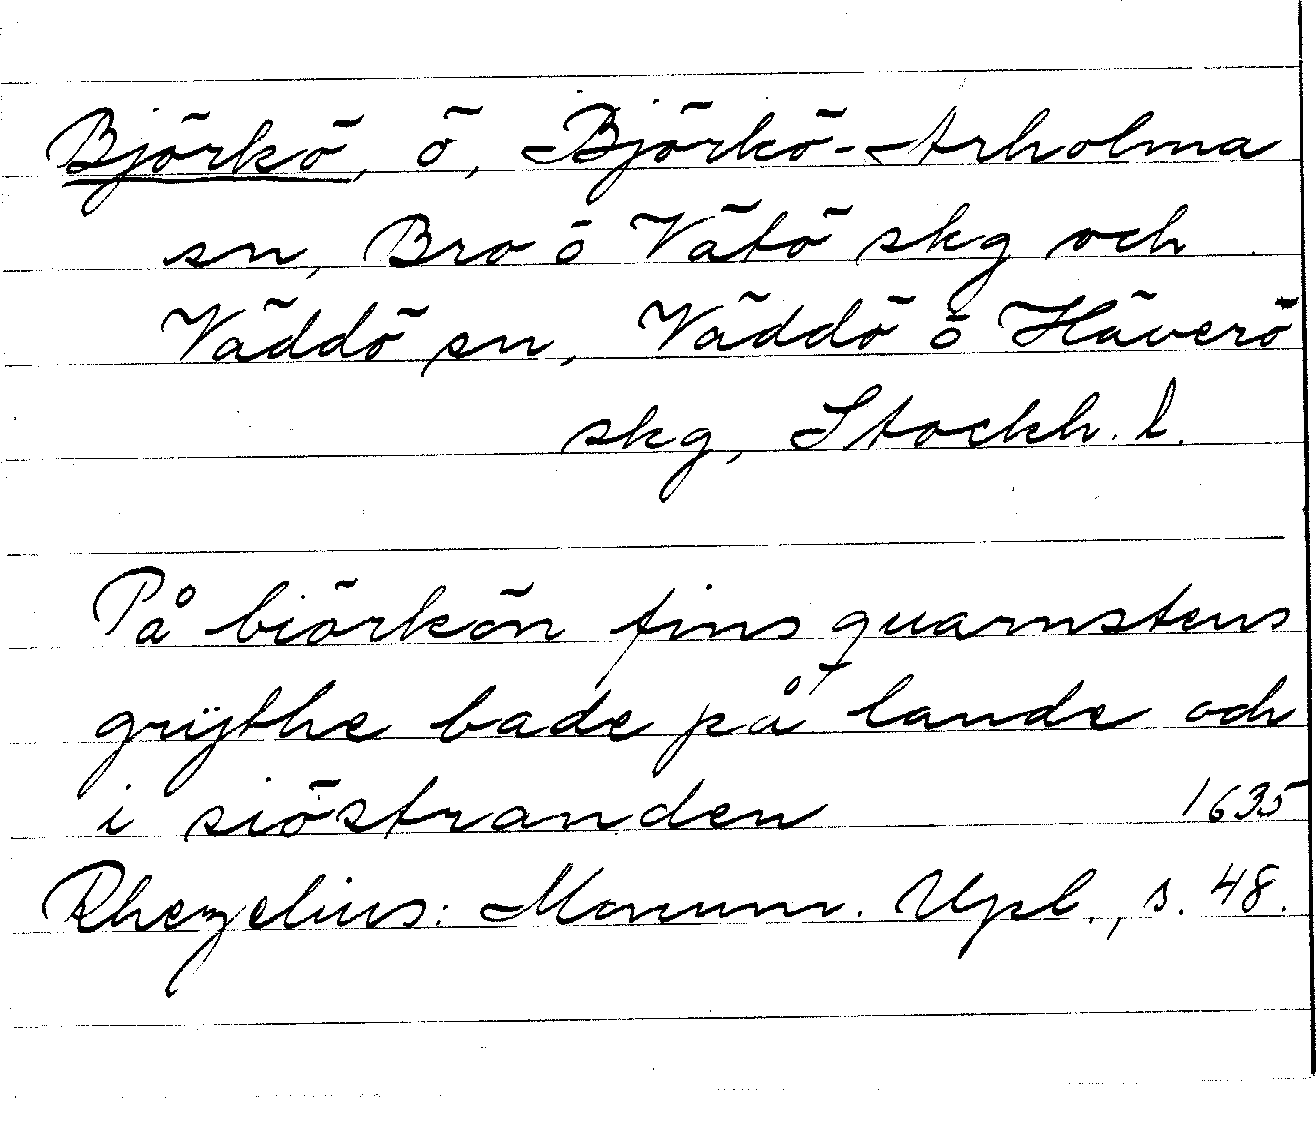 Björkö, ö, Björkö-Arholma
sn, Bro o Vätö skg och
Väddö sn, Väddö o Häverö
skg, Stockh. l.
På biörkön fins quarnstens
grÿthe bade på lande och
i siöstranden 1635
Rhezelius: Monum. Upl., s. 48.